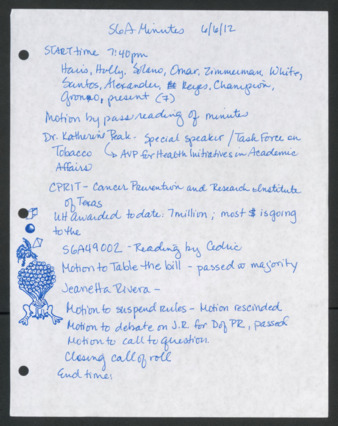 SGA Minutes 6/6/12
START time 7:40pm
Haris, Holly, Solano, Omar, Zimmerman, White,
Santos, Alexander, Reyes, Champion,
present (7)
Motion by pass reading of minutes
Dr. Katherine Peak - Special speaker / Task Force on
Tobacco ↳ AVP for Health Initiatives in Academic
Affairs
CPRIT - Cancer Prevention and Research Institute
of Texas
UH awarded to date: 7million ; most $ is going
to the
SGA49002 - Reading by Cedric
Motion to Table the bill - passed w majority
Jeanetta Rivera -
Motion to suspend rules - Motion rescinded
Motion to debate on J.R. for D of PR, passed
Motion to call to question
Closing call of roll
End time: